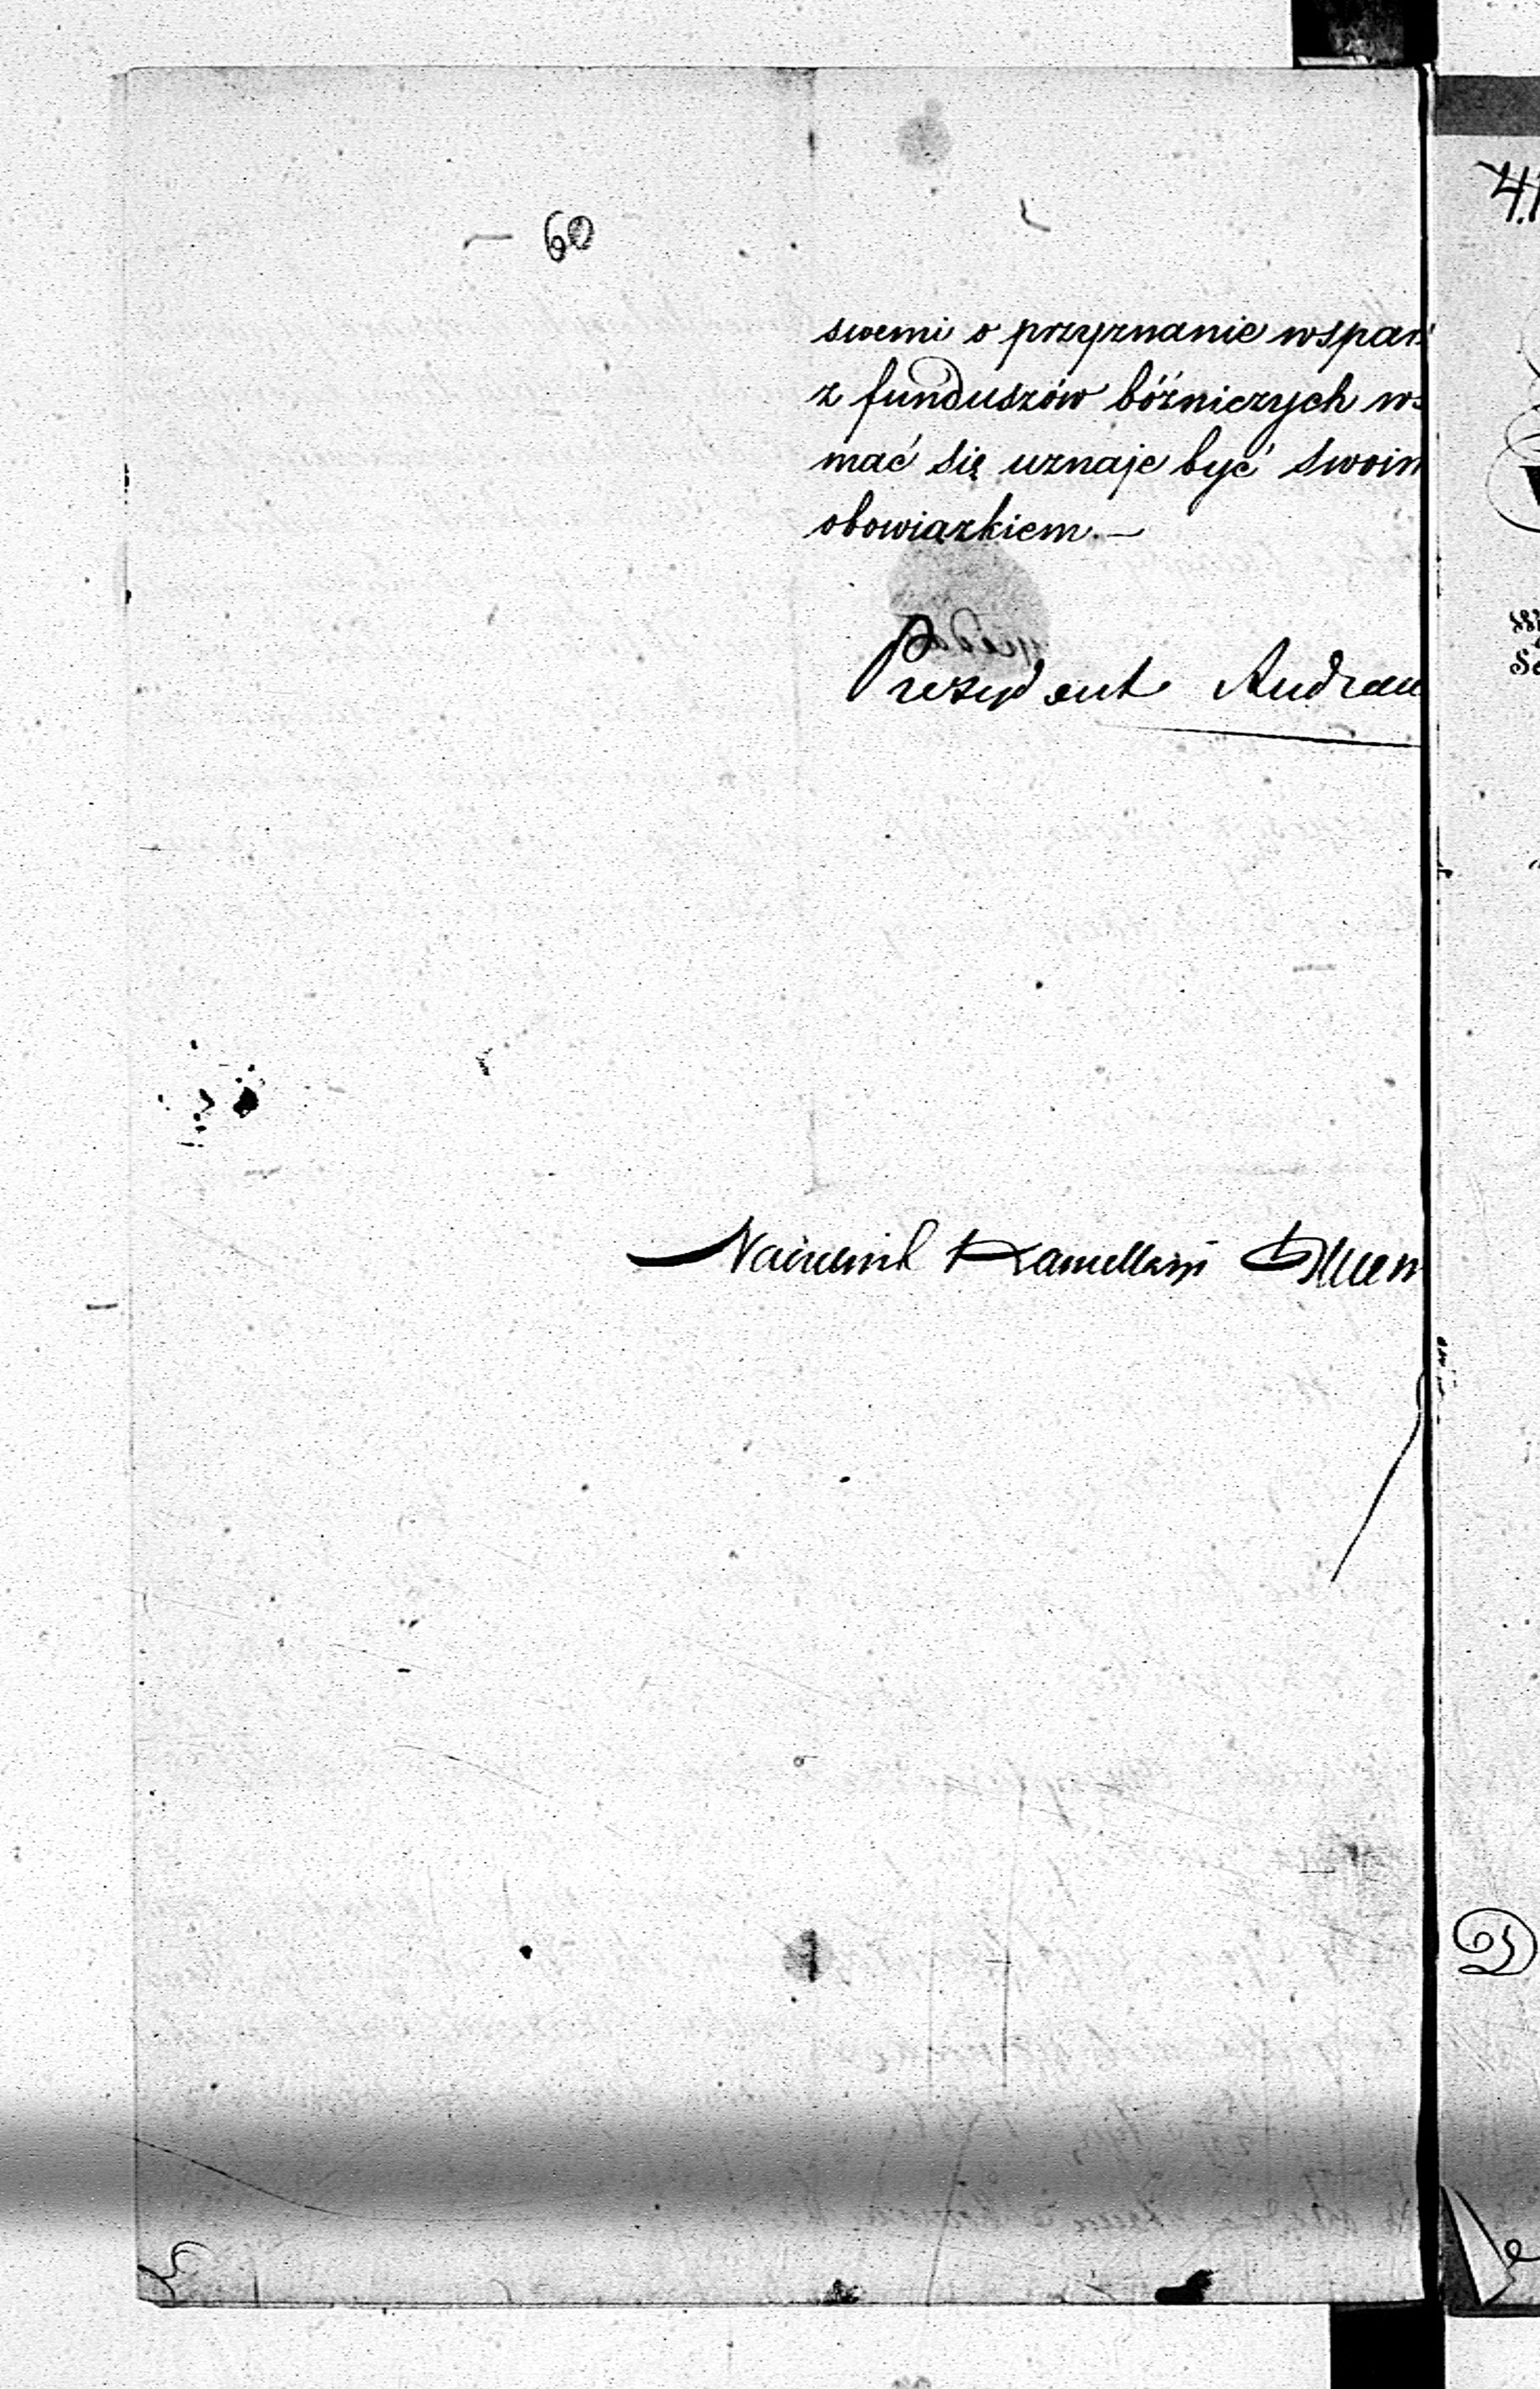 60
swemi o przyznanie wspar
z funduszów bóżniczych ws
mać się uznaje być swoim
obowiązkiem. —
Prezydent Andrau
Naczelnik Kancellaryi
41